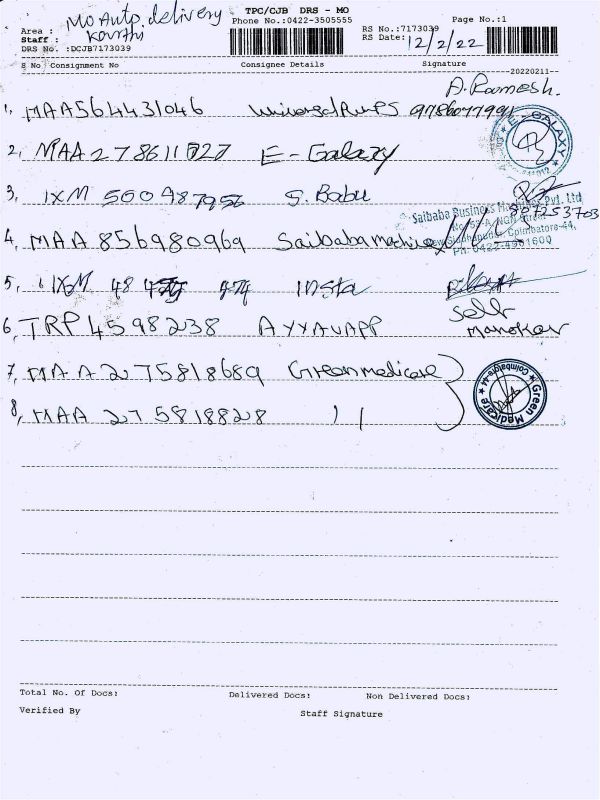 TPC/CJB DRS - MO
Phone No.:0422-3505555
Page No.:1
Area : Mo Auto delivery
Staff :
DRS No. :DCJB7173039
RS No.:7173039
RS Date: 12/2/22
S No Consignment No Consignee Details Signature
20220211
A. Ramesh.
1, MAA564431046
2, MAA278611727 E-Galaxy
E - GALAXY
3, IXM 500987956 S. Babu
Saibaba Business Machines Pvt. Ltd
Coimbatore-44,
4, MAA 856980969
5, IXM 48 974 Insta
Self
6, TRP 4598238 AYYAUAPP
Manokar
7, MAA 275818689 Greenmedicare
Green Medicare
Coimbatore-44
8, MAA 275818828 11
Total No. Of Docs: Delivered Docs: Non Delivered Docs:
Verified By Staff Signature